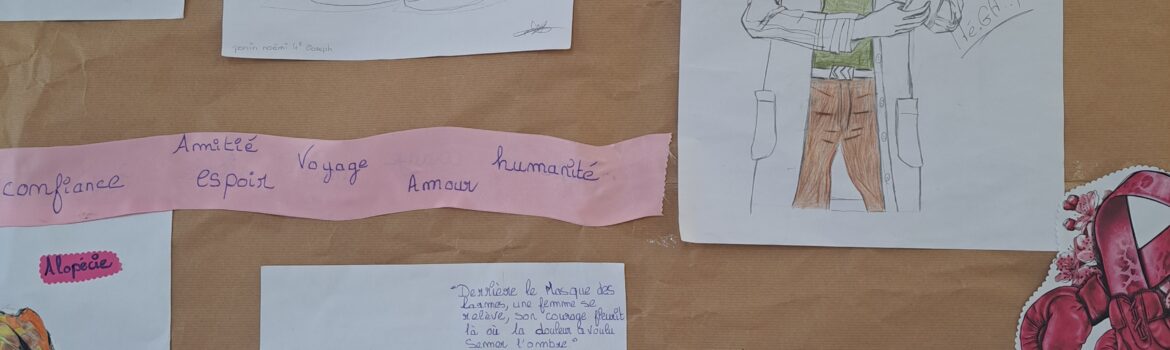 4° Joseph
Amitié
Voyage
humanité
confiance
espoir
Amour
Alopécie
"Derrière le Masque des
larmes, une femme se
relève, son courage fleurit
là où la douleur a voulu
semer l'ombre"